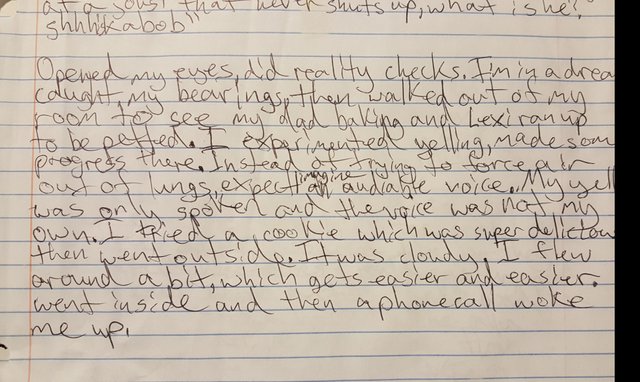 at a joust that never shuts up, what is he?
shhhkabob"
Opened my eyes, did reality checks. I'm in a drea
caught, my bearings, then walked out of my
room to see my dad baking and Lexi ran up
to be petted. I experimented yelling, made som
progress there. Instead of trying to force air
imagine
out of lungs, expect an audiable voice. My yell
was only spoken and the voice was not my
own. I tried a cookie which was super delictou
then went outside. It was cloudy. I flew
around a bit, which gets easier and easier.
went inside and then a phonecall woke
me up.